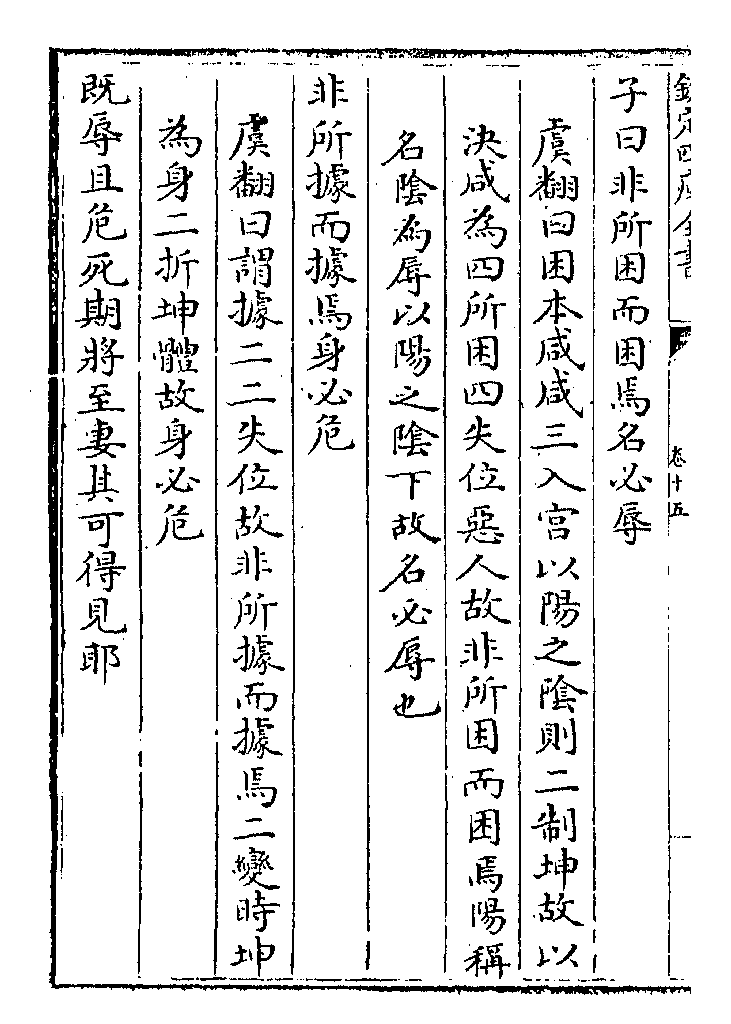 欽定四庫全書
卷十五
子曰非所困而困焉名必辱
虞翻曰困本咸咸三入宫以陽之陰則二制坤故以
決咸為四所困四失位惡人故非所困而困焉陽稱
名陰為辱以陽之陰下故名必辱也
非所據而據焉身必危
虞翻曰謂據二二失位故非所據而據焉二變時坤
為身二折坤體故身必危
既辱且危死期將至妻其可得見耶